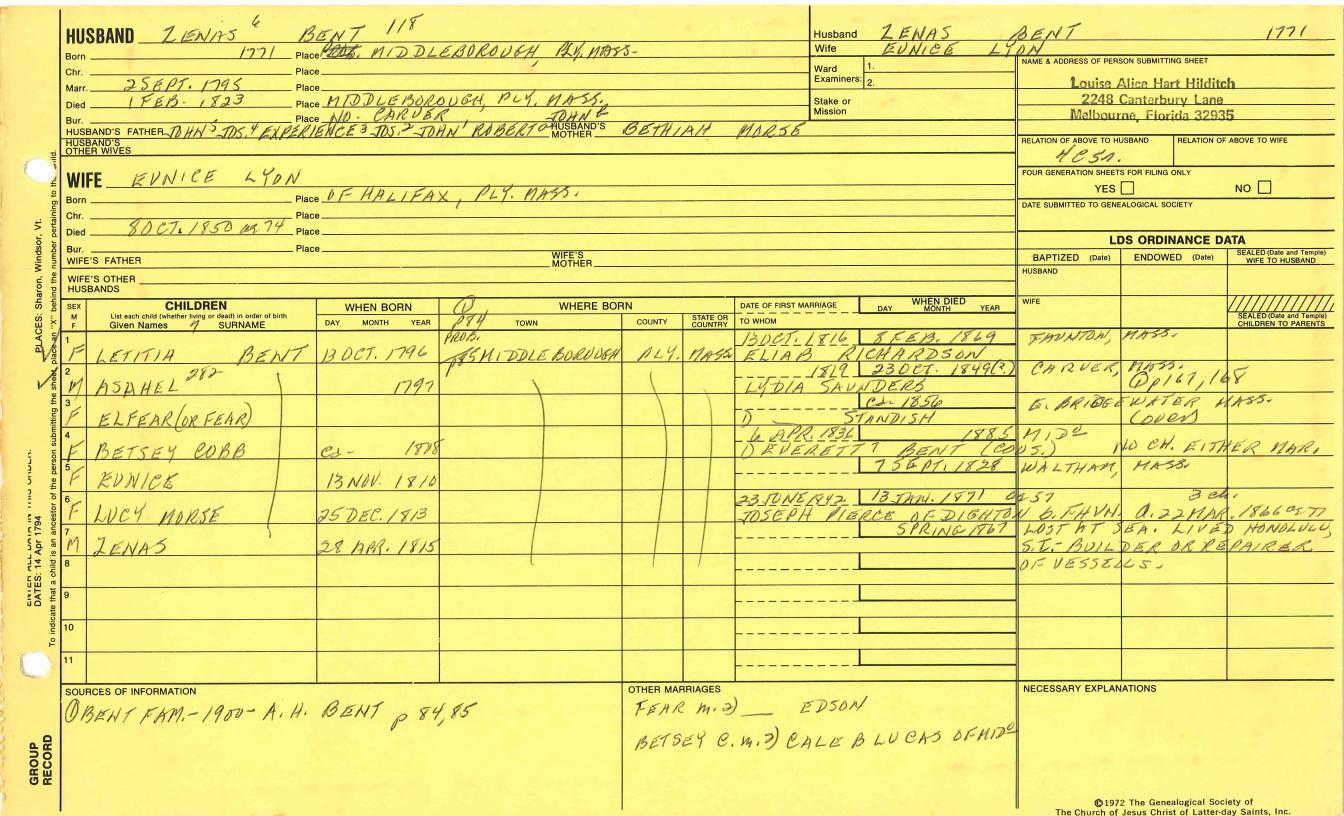 HUSBAND ZENAS 6 BENT 118
Born 1771 Place MIDDLEBOROUGH, PLY. MASS.
Chr. Place
Marr. 2 SEPT. 1795 Place
Died 1 FEB. 1823 Place MIDDLEBOROUGH, PLY. MASS.
Bur. Place NO. CARVER
HUSBAND'S FATHER JOHN 5 JOS. 4 EXPERIENCE 3 JOS. 2 JOHN 1 ROBERT JOHN HUSBAND'S MOTHER BETHIAH MORSE
HUSBAND'S OTHER WIVES
WIFE EUNICE LYON
Born Place OF HALIFAX, PLY. MASS.
Chr. Place
Died 8 OCT. 1850 ag 74 Place
Bur. Place
WIFE'S FATHER WIFE'S MOTHER
WIFE'S OTHER HUSBANDS
Husband ZENAS BENT 1771
Wife EUNICE LYON
Ward Examiners: 1.
2.
Stake or Mission
NAME & ADDRESS OF PERSON SUBMITTING SHEET
Louise Alice Hart Hilditch
2248 Canterbury Lane
Melbourne, Florida 32935
RELATION OF ABOVE TO HUSBAND RELATION OF ABOVE TO WIFE
FOUR GENERATION SHEETS FOR FILING ONLY
YES NO
DATE SUBMITTED TO GENEALOGICAL SOCIETY
LDS ORDINANCE DATA
BAPTIZED (Date) ENDOWED (Date) SEALED (Date and Temple) WIFE TO HUSBAND
HUSBAND
WIFE
SEALED (Date and Temple) CHILDREN TO PARENTS
SEX M F
CHILDREN
List each child (whether living or dead) in order of birth
Given Names 7 SURNAME
WHEN BORN
DAY MONTH YEAR
WHERE BORN
TOWN COUNTY STATE OR COUNTRY
DATE OF FIRST MARRIAGE
TO WHOM
WHEN DIED
DAY MONTH YEAR
p84
1 F LETITIA BENT 13 OCT. 1796 PROB. MIDDLEBOROUGH PLY. MASS
13 OCT. 1816 8 FEB. 1869 TAUNTON, MASS.
ELIAB RICHARDSON
2 M ASAHEL 282 1797
1819 23 OCT. 1849(?) CARVER, MASS.
LYDIA SAUNDERS p167, 168
3 F ELFEAR (OR FEAR)
ca. 1856 E. BRIDGEWATER MASS.
STANDISH (OVER)
4 F BETSEY COBB ca-
6 APR. 1836 1885 MIDO
EVERETT 7 BENT (COUS.) NO CH. EITHER MAR.
5 F EUNICE 13 NOV. 1810
7 SEPT. 1828 WALTHAM, MASS.
6 F LUCY MORSE 25 DEC. 1813
23 JUNE 1842 13 JAN. 1871 ae 57 3 ch.
JOSEPH PIERCE OF DIGHTON 22 MAR. 1866
7 M ZENAS 28 APR. 1815
SPRING 1867 LOST AT SEA. LIVED HONOLULU,
S.I.- BUILDER OR REPAIRER
OF VESSELLS.
8
9
10
11
SOURCES OF INFORMATION
① BENT FAM.- 1900 - A. H. BENT p 84, 85
OTHER MARRIAGES
FEAR m. 2) __ EDSON
BETSEY C. m. 2) CALEB LUCAS OF MIDO
NECESSARY EXPLANATIONS
©1972 The Genealogical Society of
The Church of Jesus Christ of Latter-day Saints, Inc.
PLACES: Sharon, Windsor, Vt.
DATES: 14 Apr 1794
GROUP RECORD